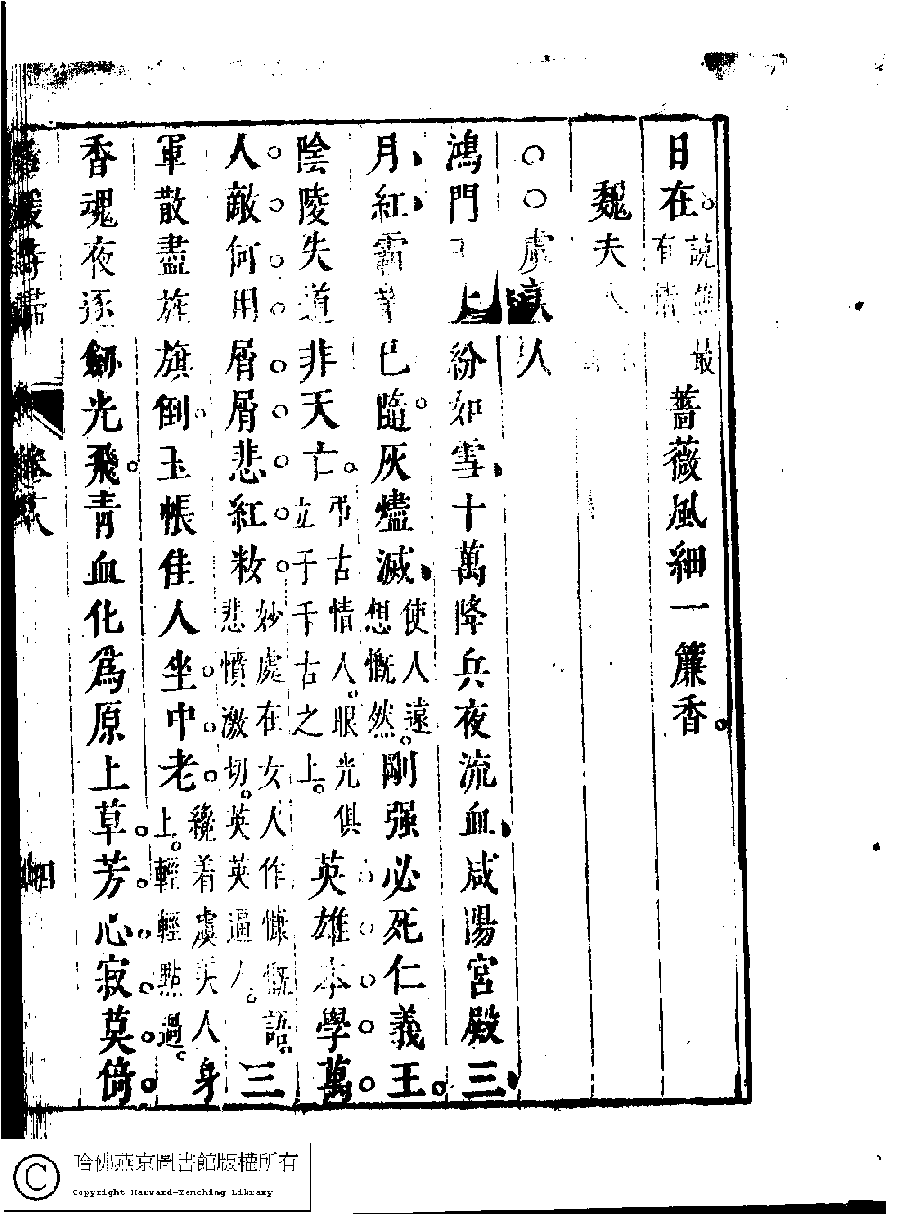 日在。說無最有情薔薇風細一簾香。
魏夫人
○○虞美人
鴻門紛如雪十萬降兵夜流血咸陽宮殿三
月紅霸業已隨灰燼滅使人遠想慨然。剛强必死仁義王。
陰陵失道非天亡。弔古情人。眼光俱立于千古之上。英雄本學萬
人敵何用屑屑悲紅粧妙處在女人作慷慨語。悲憤激切。英英逼人。三
軍散盡旌旗倒。玉帳佳人坐中老。纔着虞美人身上。輕輕點過。
香魂夜逐劍光飛。青血化爲原上草。芳心寂莫倚
詩歸 卷 八 四
哈佛燕京圖書館版權所有
Copyright Harvard-Yenching Library